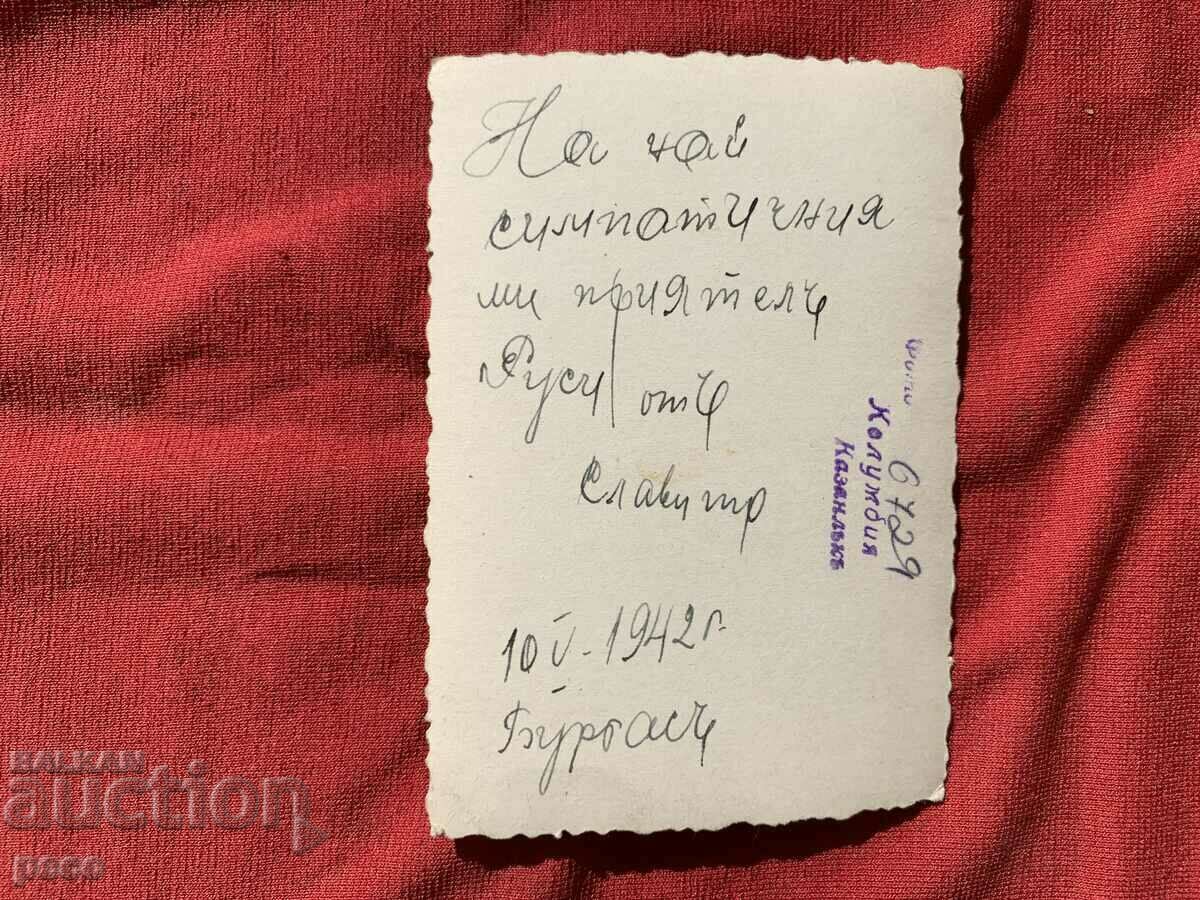 На най
симпатичния
ми приятелъ
Руси отъ
10 V - 1942 г.
Бургасъ
фото
Калужбия
6729
Казанлъкъ
BALKAN
auction
peco